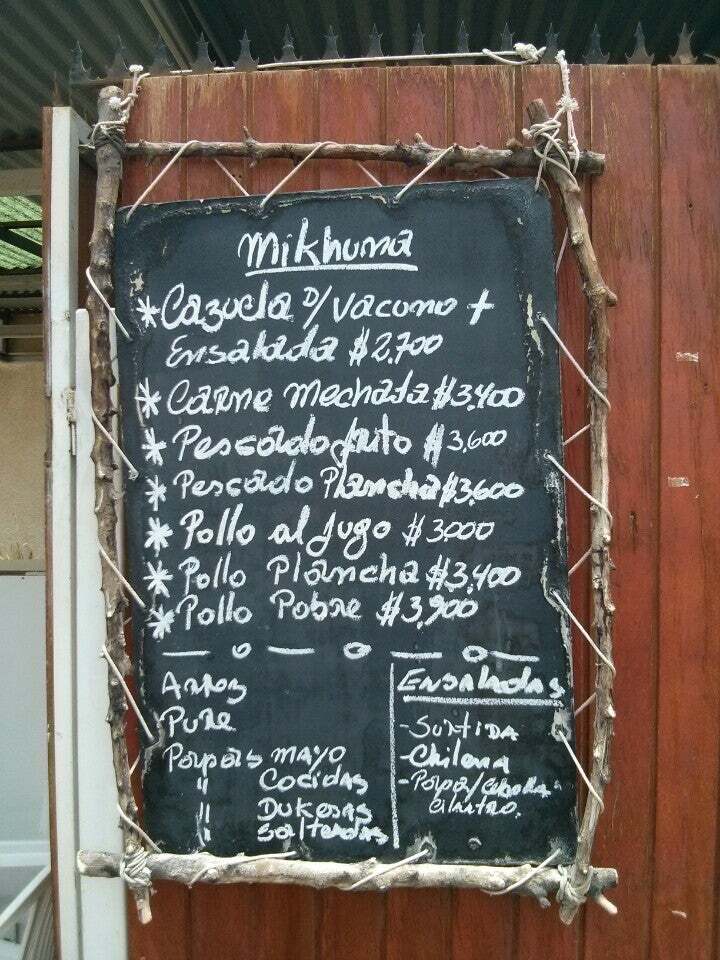 Mikhuna
* Cazuela D/ Vacuno +
Ensalada $2.700
* Carne Mechada $3.400
* Pescado frito $3.600
* Pescado Plancha $3.600
* Pollo al jugo $3.000
* Pollo Plancha $3.400
* Pollo Pobre $3.900
Arroz
Pure
Papas Mayo
" Cocidas
" Dukesas
" Salteadas
Ensaladas
- Surtida
- Chilena
- Papa/Cebolla
Cilantro.